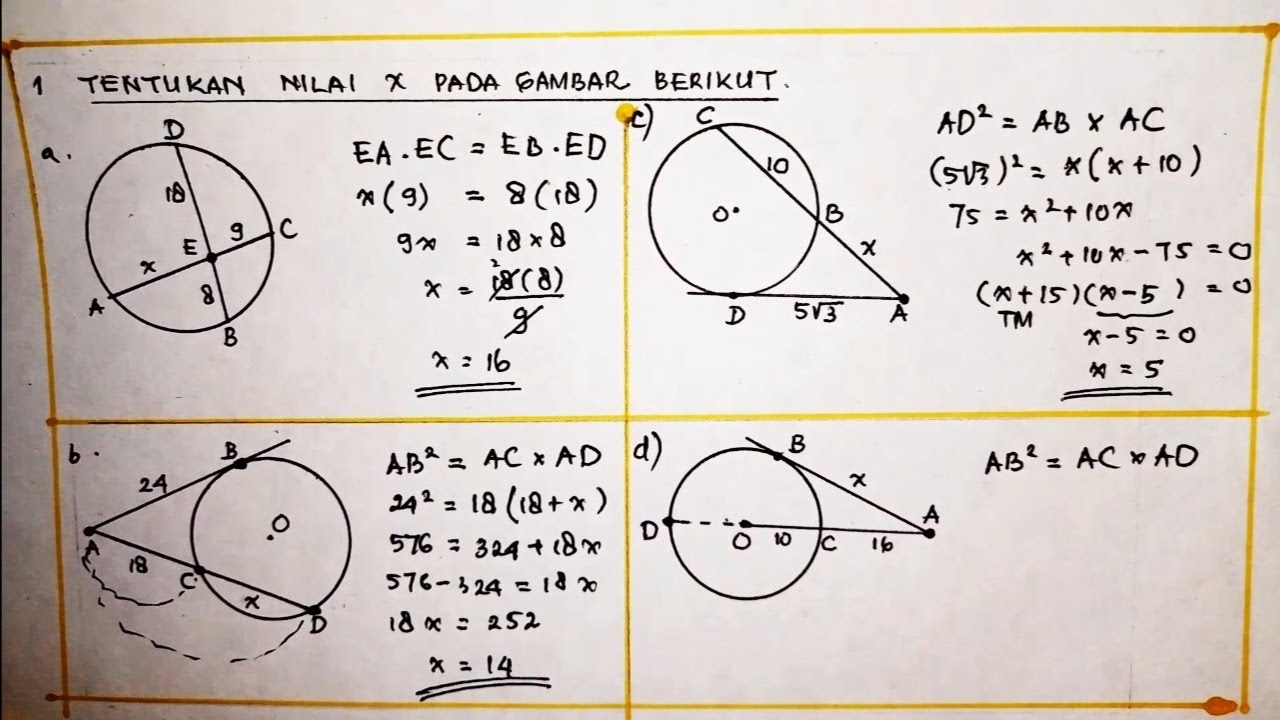 1 TENTUKAN NILAI x PADA GAMBAR BERIKUT.
a.
D
18
E
9
C
x
8
A
B
EA . EC = EB . ED
x(9) = 8(18)
9x = 18 x 8
x = 18(8) / 9
2
x = 16
c)
C
10
O
B
x
D
5√3
A
AD² = AB x AC
(5√3)² = x(x + 10)
75 = x² + 10x
x² + 10x - 75 = 0
(x + 15)(x - 5) = 0
TM
x - 5 = 0
x = 5
b.
B
24
O
A
18
C
x
D
AB² = AC x AD
24² = 18(18 + x)
576 = 324 + 18x
576 - 324 = 18x
18x = 252
x = 14
d)
B
x
A
D
O
10
C
16
AB² = AC x AD